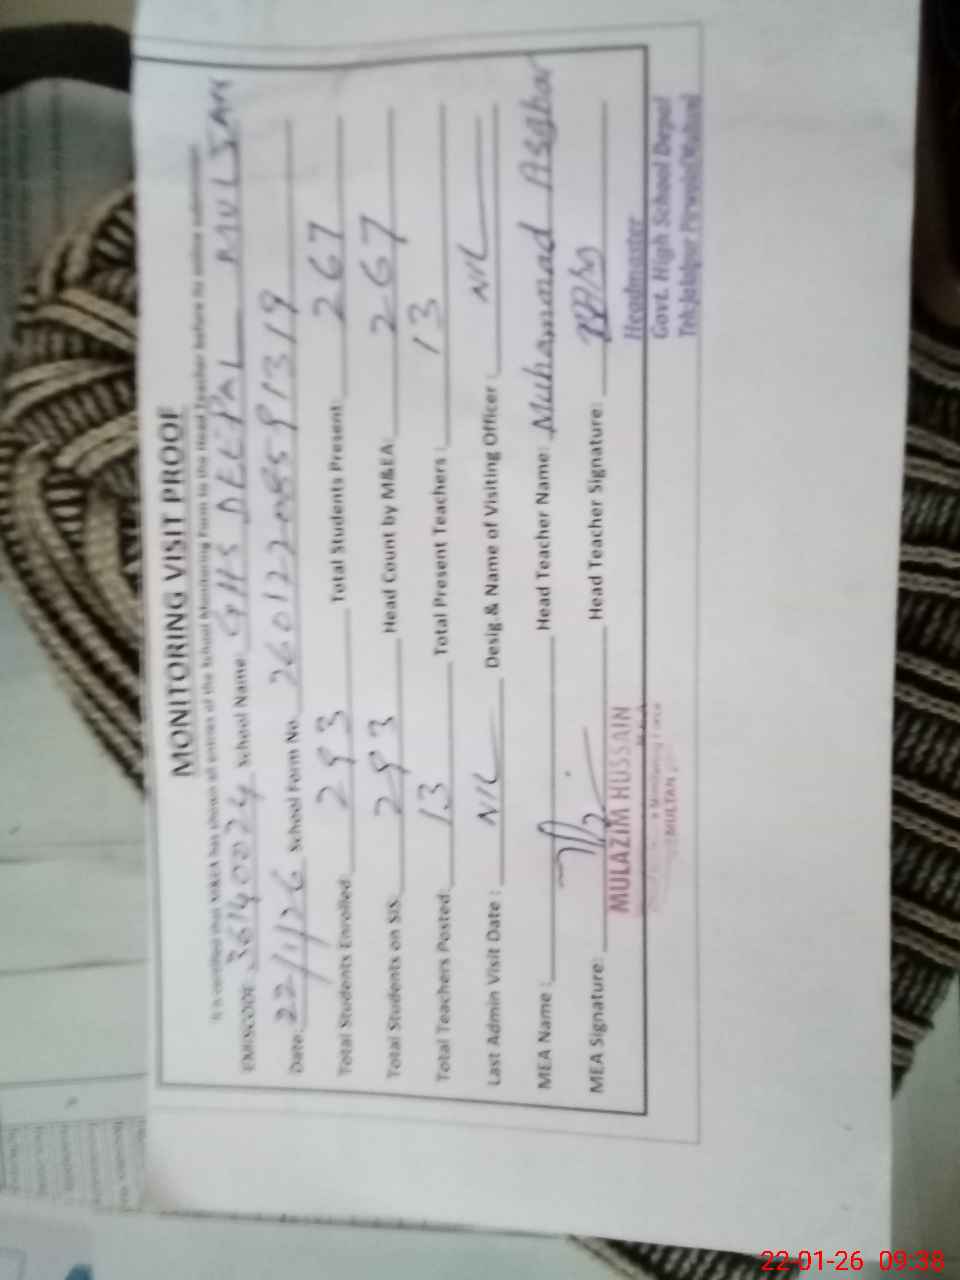 MONITORING VISIT PROOF
It is certified that M&EA has shown all entries of the School Monitoring Form to the Head Teacher before its online
EMISCODE: 36140024 School Name: GHS DEEPAL MULTAN
Date: 22/1/26 School Form No. 1319
Total Students Enrolled: 293 Total Students Present: 267
Total Students on SIS 293 Head Count by M&EA: 267
Total Teachers Posted: 13 Total Present Teachers : 13
Last Admin Visit Date : NIL Desig.& Name of Visiting Officer : NIL
MEA Name : Head Teacher Name: Muhammad Asghar
MEA Signature: Head Teacher Signature:
MULAZIM HUSSAIN
MULTAN
Headmaster
Govt. High School Depal
Teh: Jalalpur Pirwala (Multan)
22-01-26 09:38